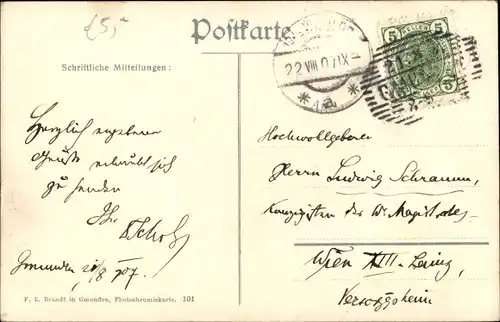 £5,-
Postkarte.
Schriftliche Mitteilungen:
22 VIII 07 IX
* 4a *
5 HELLER 5
Herzlich ergebenen
Gruß erlaubt sich
zu senden
Ihr
Scholz
Gmunden 21/8 907.
Hochwohlgeboren
Herrn Ludwig Schramm,
Konzipisten des W. Magistrates
Wien XIII. Lainz,
Versorgsheim
F. E. Brandt in Gmunden, Photochromiekarte. 101